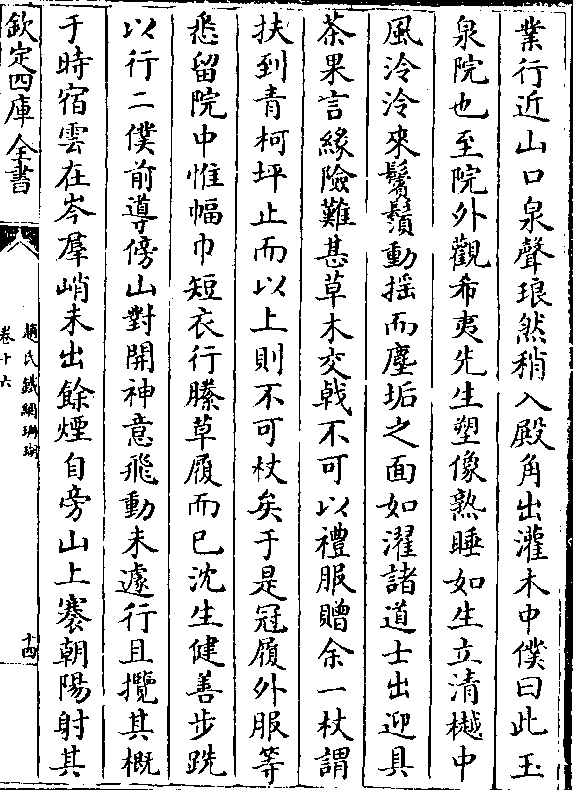 業行近山口泉聲琅然稍入殿角出灌木中僕曰此玉
泉院也至院外觀希夷先生塑像熟睡如生立清樾中
風泠泠來鬢鬚動揺而塵垢之面如濯諸道士出迎具
茶果言緣險難甚草木交戟不可以禮服贈余一杖謂
扶到青柯坪止而以上則不可杖矣于是冠履外服等
悉留院中惟幅巾短衣行縢草履而已沈生健善步跣
以行二僕前導傍山對開神意飛動未遽行且攬其概
于時宿雲在岑羣峭未出餘煙自旁山上褰朝陽射其
欽定四庫全書
趙氏鐵網珊瑚
卷十六
十四